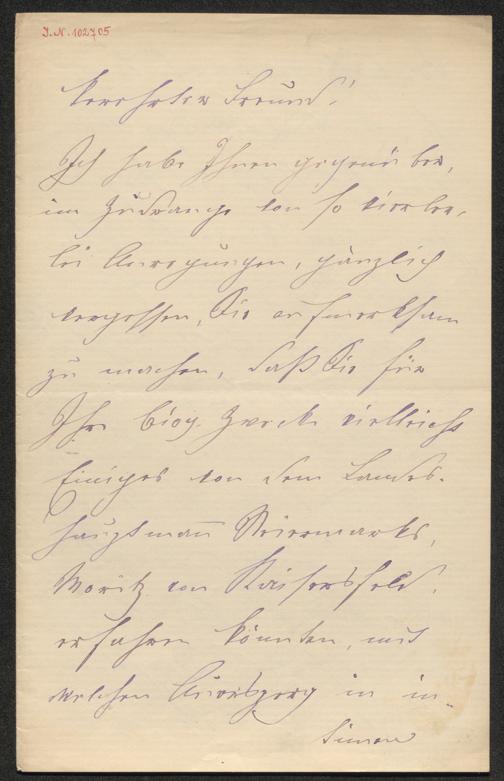 J.N. 102705
Verehrter Freund!
Ich habe Ihnen gegenüber,
im Zudrange von so vierler-
lei Anregungen, gänzlich
vergessen, Sie aufmerksam
zu machen, daß Sie für
Ihre biog. Zwecke vielleicht
Einiges von dem Landes-
hauptmann Steiermarks,
Moritz von Kaisersfeld,
erfahren könnten, mit
welchem Auersperg in in-
timem